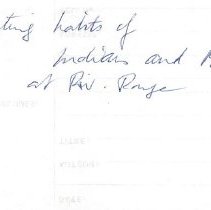 ting habits of
Indians and
at Riv. Range
DATE